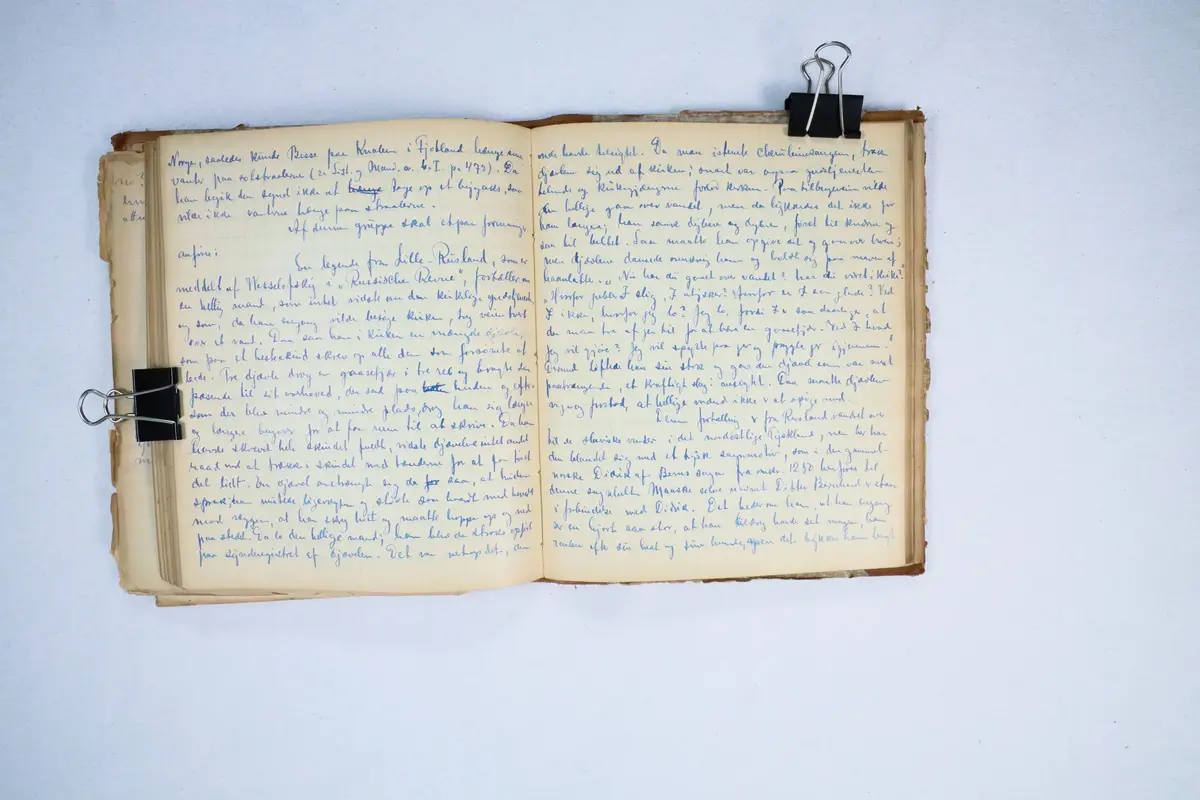 Norge, saaledes kunde Bosse paa Knaben i Fjotland hænge sine
vanter paa solstraalerne (2. Saml. p. 473). Da
han begik den synd ikke at tage op et bygaks, saa
vilde ikke vanterne hænge paa straalerne.
Af denne gruppe skal et par
anføres:
En legende fra Lille-Rusland, som er
meddelt af Wesselofsky i „Russische Revue", fortæller om
en hellig mand, som intet vidste om den kirkelige gudstjeneste
og som, da han engang vilde besøge kirken, tog veien bort
over et vand. Da saa han i kirken en mængde djævle,
som paa et hesteskind skrev op alle dem som forsømte at
bede. Tre djævle drog en gaasefjær i tre og
til sit hoved, der sad paa huden og efter-
som der blev mindre og mindre plads, drog han sig længer
og længere for at faa rum til at skrive. Da han
havde skrevet hele skindet fuldt, vidste djævelen intet andet
raad end at trække i skindet med tænderne for at faa det
det lidt. En djævel anstrengte sig da saa, at huden
sprak, han mistede ligevægten og stødte som hovedet
mod væggen, at han skreg høit og maatte hoppe op og ned
paa stedet. Da lo den hellige mand; han blev da straks opført
paa synderegistret af djævlen. Det var netop det, den
onde havde besigtet. Da man istemte cherubimsangen, trak
djævlene sig ud af kirken; snart var ogsaa gudstjenesten
tilende og kirkegjængerne forlod kirken. Paa tilbageveien vilde
den hellige gaa over vandet, men da lykkedes det ikke for
ham længer; han sank dybere og dybere, først til knærne og
saa til beltet. Saa maatte han opgive det og gaa over broen;
men djævlene dansede omkring ham og holdt sig paa maven af
haanlatter. „Nu har du gaaet over vandet? har du været i kirke?"
„Hvorfor jubler I slig, I utysker? Hvorfor er I saa glade? Ved
I ikke, hvorfor jeg lo? Jeg lo, fordi I er saa daarlige, at
der maa tre af jer til for at bære en gaasefjær. Ved I hvad
jeg vil gjøre? Jeg vil spytte paa jer og prygle jer igjennem."
Dermed løftede han sin stok og gav den djævel som var mest
paatrængende, et kraftigt slag i ansigtet. Da maatte djævlene
vige og forstod, at hellige mænd ikke er at spøge med.
Denne fortælling er fra Rusland vandret over
til de slaviske vender i det nordøstlige Tyskland, men der har
den blandet sig med et tysk sagnmotiv, som i den gammel-
norske Didrik af Berns saga fra omkr. 1250
denne sagn Manske nævnt Dieter Bernhard er
i forbindelse med Didrik. Det heder om ham, at han engang
ser en hjort saa stor, at han aldrig havde set magen, han
efter sin hest og sine hunde, men det lykkes ham